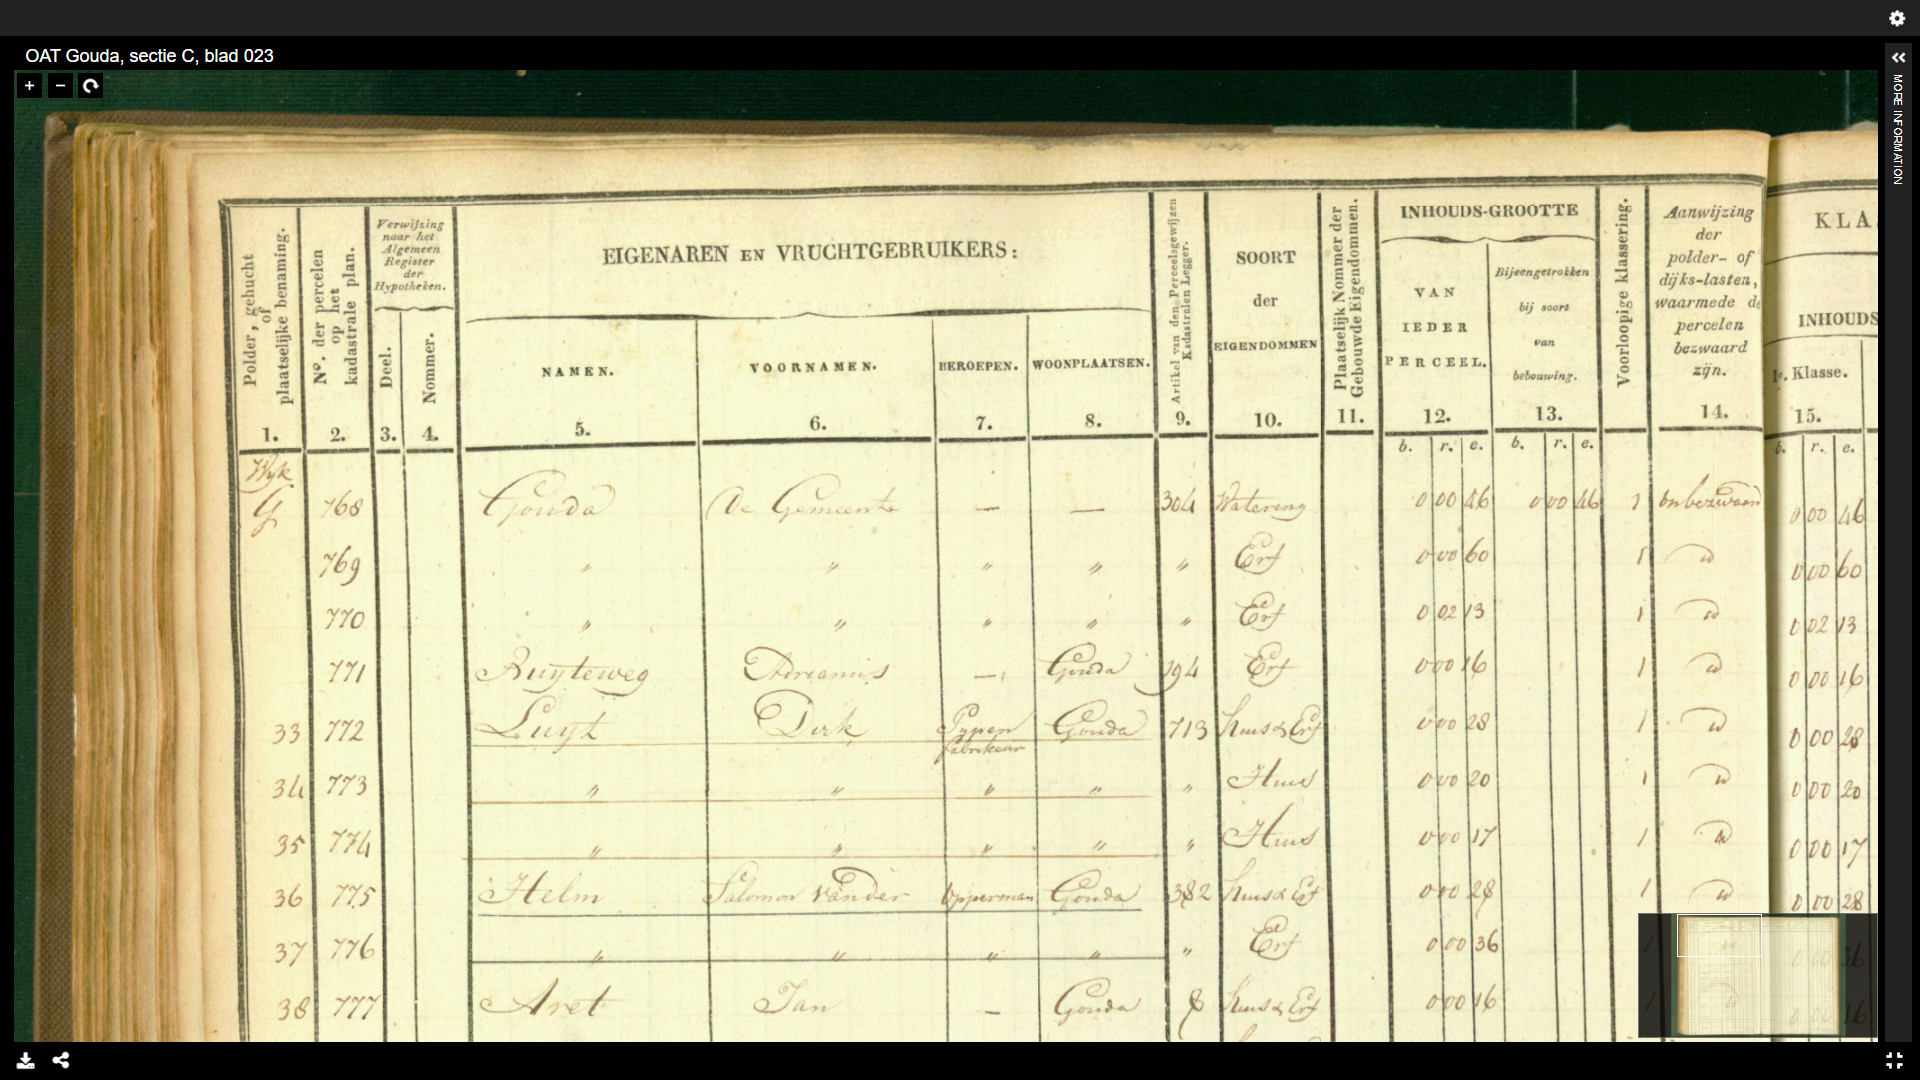 OAT Gouda, sectie C, blad 023
MORE INFORMATION
Polder, gehucht of plaatselijke benaming.
Nº. der percelen op het kadastrale plan.
Verwijzing naar het Algemeen Register der Hypotheken.
Deel.
Nommer.
EIGENAREN EN VRUCHTGEBRUIKERS:
NAMEN.
VOORNAMEN.
BEROEPEN.
WOONPLAATSEN.
Artikel van den Perceelsgewijzen Kadastralen Legger.
SOORT
der
EIGENDOMMEN
Plaatselijk Nommer der Gebouwde Eigendommen.
INHOUDS-GROOTTE
VAN
IEDER
PERCEEL.
Bijeengetrokken
bij soort
van
bebouwing.
Voorloopige klassering.
Aanwijzing
der
polder- of
dijks-lasten,
waarmede de
percelen
bezwaard
zijn.
KLA
INHOUDS
1e. Klasse.
1. 2. 3. 4. 5. 6. 7. 8. 9. 10. 11. 12. 13. 14. 15.
b. r. e. b. r. e. b. r. e.
Wyk
G 768 Gouda De Gemeente — — 304 Watering 0 00 46 0 00 46 1 onbezwaard 0 00 46
769 " " " " " Erf 0 00 60 1 0 00 60
770 " " " " " Erf 0 02 13 1 0 02 13
771 Ruyteweg Adrianus — Gouda 194 Erf 0 00 16 1 0 00 16
33 772 Luyt Dirk Pypen fabrikeur Gouda 713 huis & Erf 0 00 28 1 0 00 28
34 773 " " " " " Huis 0 00 20 1 0 00 20
35 774 " " " " " Huis 0 00 17 1 0 00 17
36 775 Helm Salomon van der Opperman Gouda 382 huis & Erf 0 00 28 1 0 00 28
37 776 " " " " " Erf 0 00 36
38 777 Aret Jan — Gouda 8 huis & Erf 0 00 16